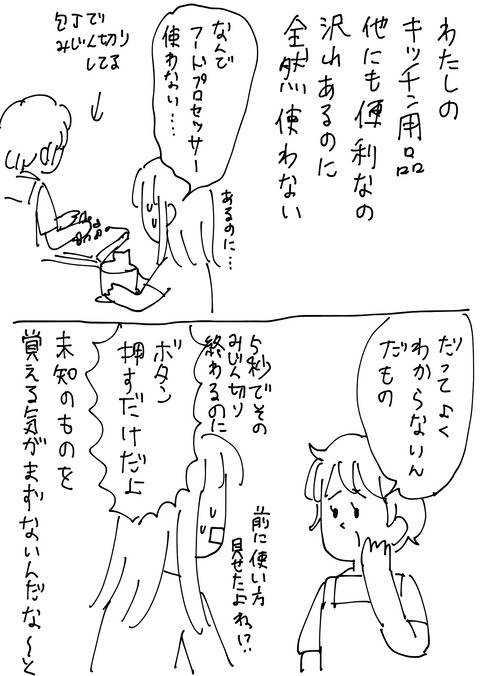 わたしの
キッチン用品
他にも便利なの
沢山あるのに
全然使わない
なんで
フードプロセッサー
使わない…
あるのに…
包丁で
みじん切り
してる
だってよく
わからないん
だもの
5秒でその
みじん切り
終わるのに
前に使い方
見せたよねっ!?
ボタン
押すだけだよ
未知のものを
覚える気がまずないんだな〜と